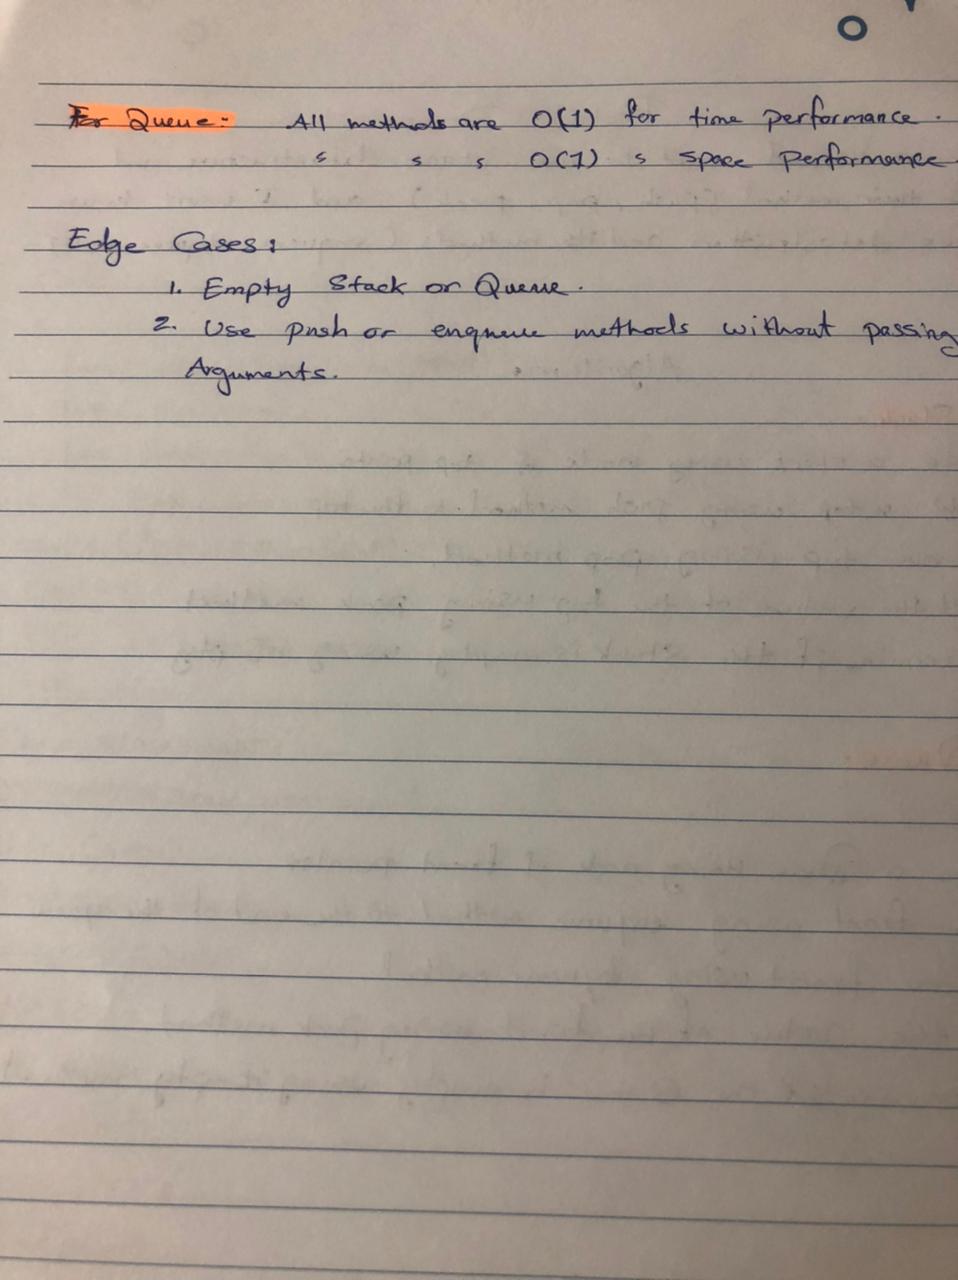 For Queue:- All methods are O(1) for time performance.
s s s O(1) s space performance
Edge Cases:
1. Empty Stack or Queue.
2. Use push or enqueue methods without passing
Arguments.